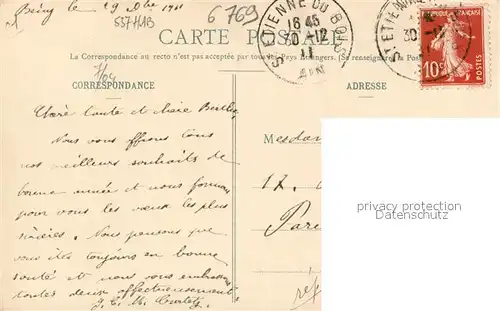 Bény le 29 Xbre 1911
537 H13
6769
ST ETIENNE DU BOIS
16 45
30 -12
11
AIN
30 -12
RÉPUBLIQUE FRANÇAISE
10c
POSTES
CARTE POSTALE
La Correspondance au recto n'est pas acceptée par tous les Pays Étrangers. (Se renseigner à la Poste
CORRESPONDANCE
ADRESSE
Chère tante et Marie Berthe,
Nous vous offrons tous
nos meilleurs souhaits de
bonne année et nous formons
pour vous les vœux les plus
sincères. Nous pensons que
vous êtes toujours en bonne
santé et nous vous embrassons
toutes deux affectueusement
Mesdam
17,
Pari
privacy protection
Datenschutz
réf